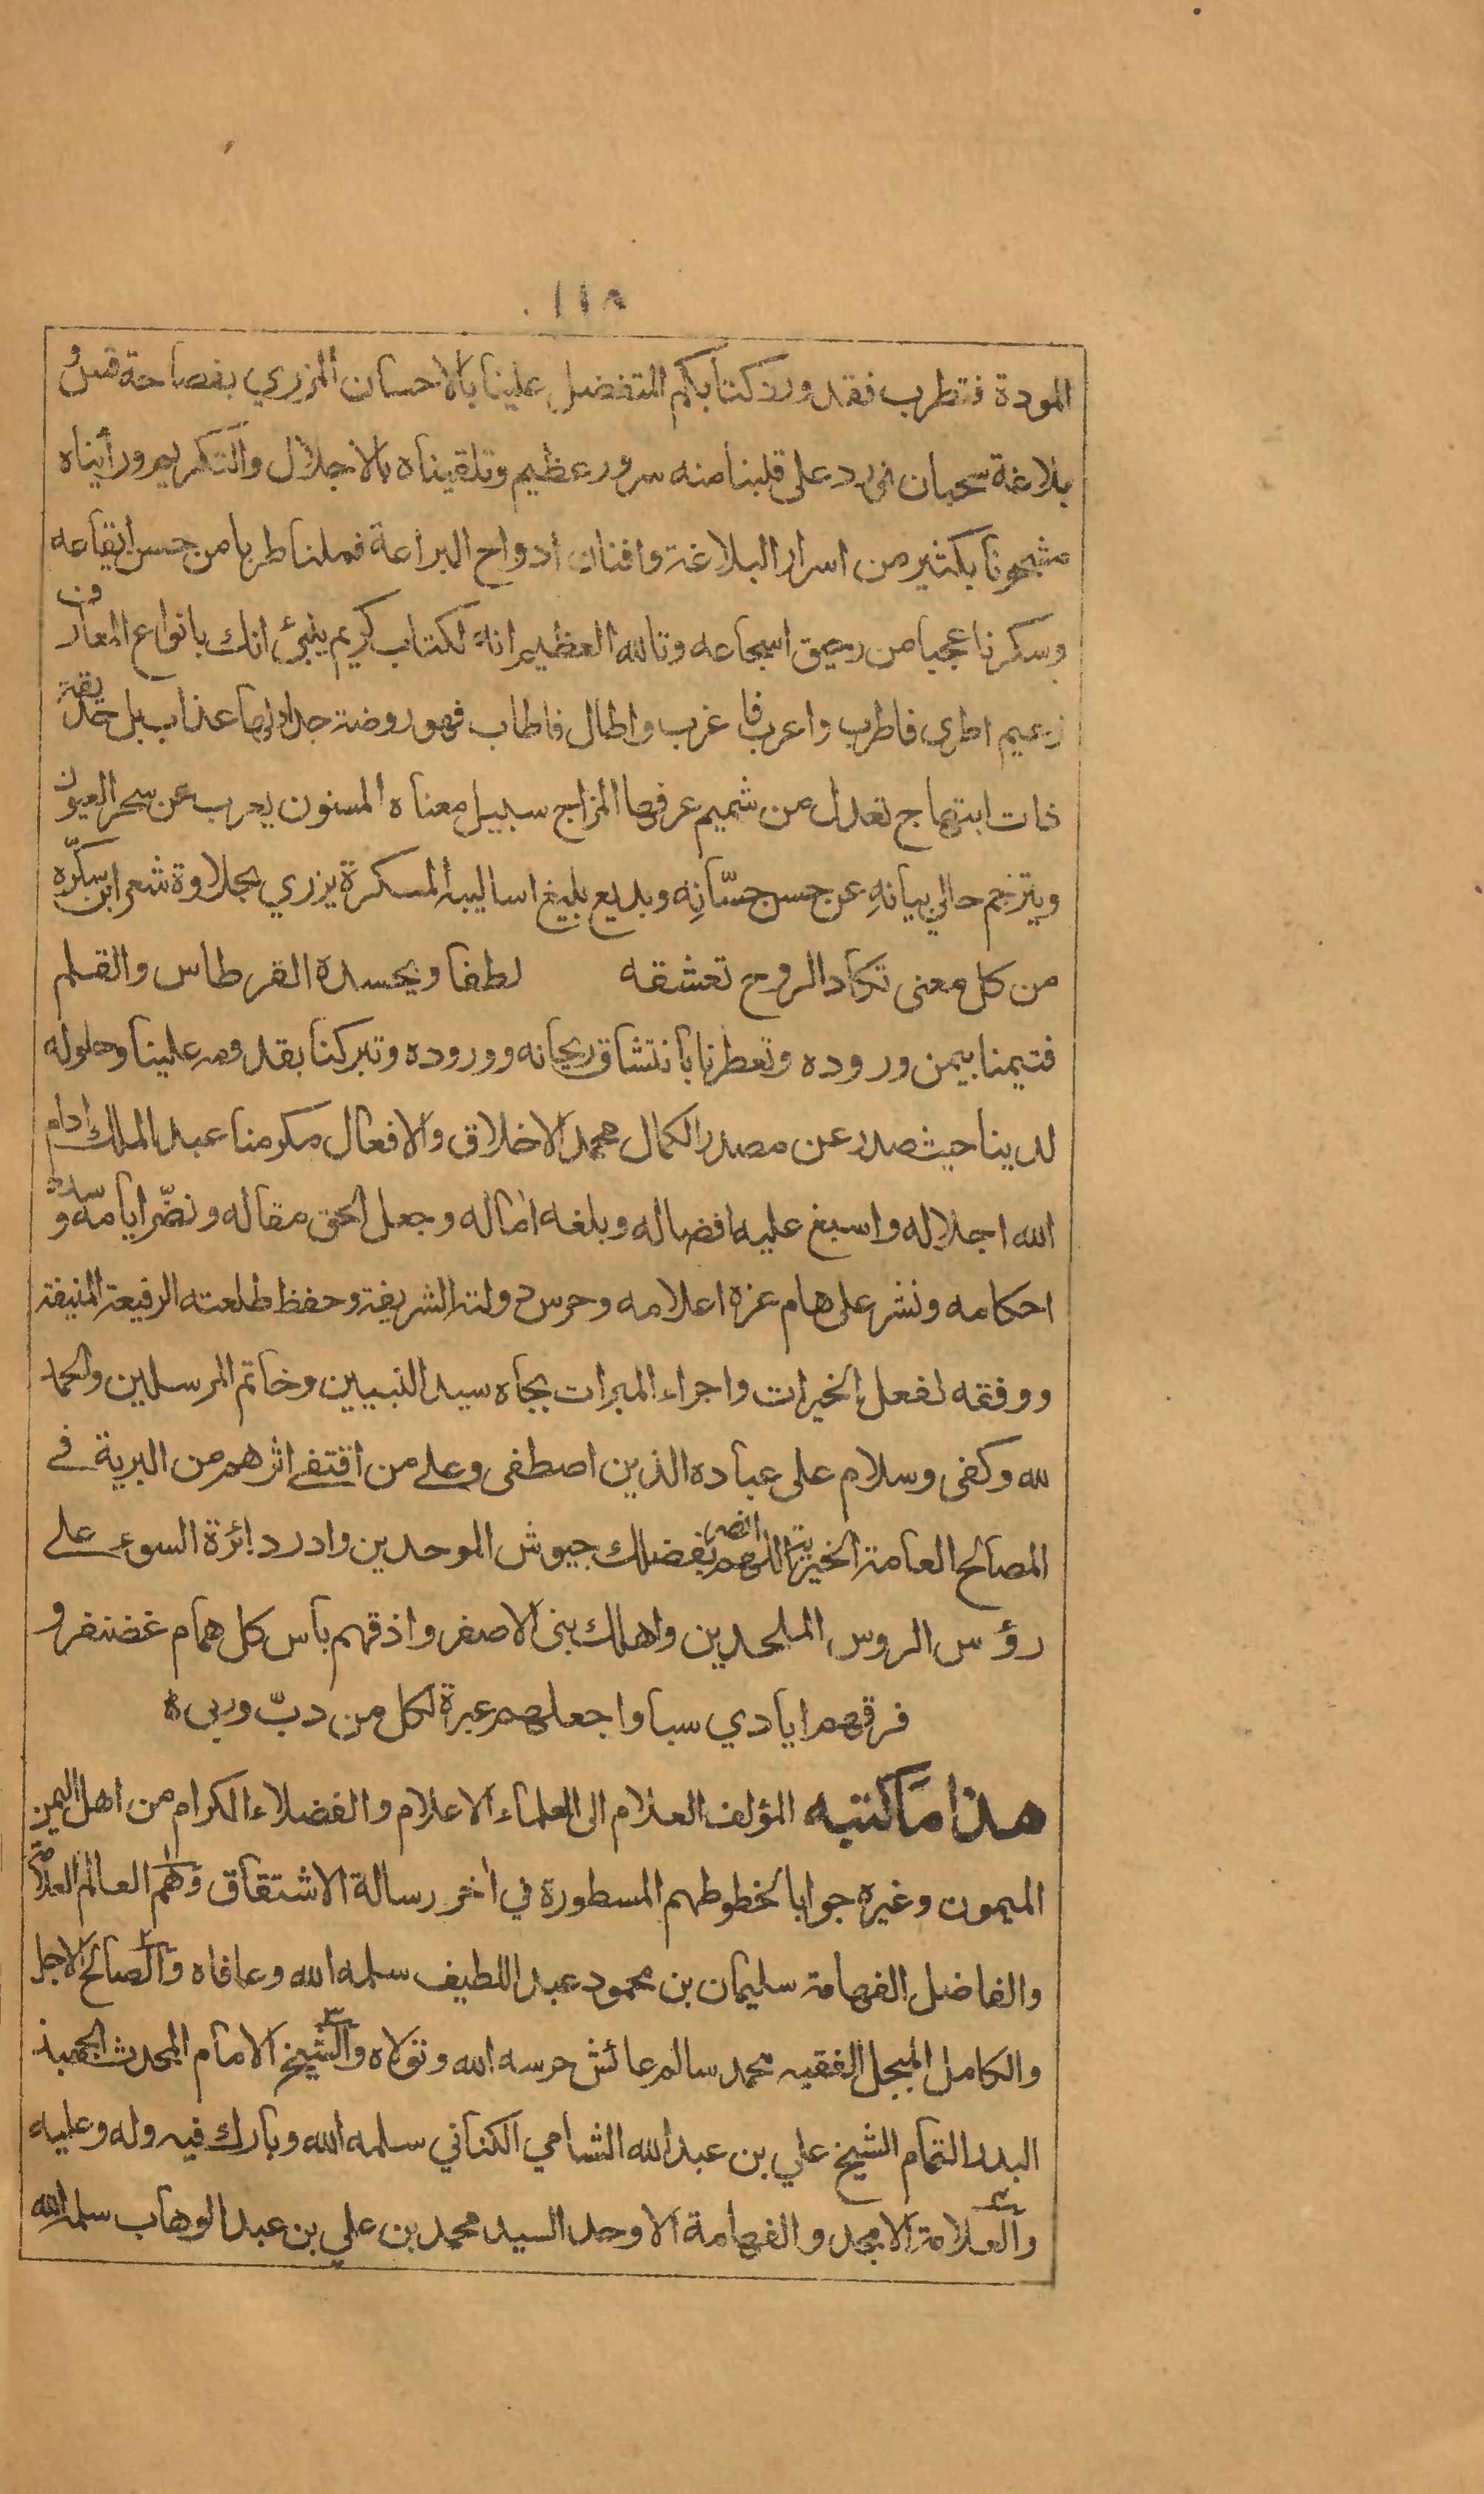 ١١٨
المودة فتطرب فقد ورد كتابكم المتفضل علينا بالاحسان المزري بفصاحة قس و
بلاغة سحبان فورد على قلبنا منه سرور عظيم وتلقيناه بالاجلال والتكريم ورأيناه
مشحونا بكثير من اسرار البلاغة وافنان ادواح البراعة فملنا طربا من حسن ايقاعه
وسكرنا عجبا من رحيق اسجاعه وتالله العظيم انه لكتاب كريم ينبئ انك بانواع المعارف
زعيم اطرى فاطرب واعرب فاغرب واطال فاطاب فهو روضة جداولها عذاب بل حديقة
ذات ابتهاج تعدل عن شميم عرفها المزاج سبيل معناه المسنون يعرب عن سحر العيون
ويترجم حالي بيانهِ عن حسن حسّانِه وبديع بليغ اساليبه المسكرة يزري بحلاوة شعر ابن سكّره
من كل معنى تكاد الروح تعشقه لطفا ويحسده القرطاس والقلم
فتيمنا بيمن وروده وتعطرنا بانتشاق ريحانه ووروده وتبركنا بقدومه علينا وحلوله
لدينا حيث صدر عن مصدر الكمال محمد الاخلاق والافعال مكرمنا عبد الملك ادام
الله اجلاله واسبغ عليه افضاله وبلغه اماله وجعل الحق مقاله ونضّر ايامه وسدد
احكامه ونشر على هام عزه اعلامه وحرس دولته الشريفة وحفظ طلعته الرفيعة المنيفة
ووفقه لفعل الخيرات واجراء المبرات بجاه سيد النبيين وخاتم المرسلين والحمد
لله وكفى وسلام على عباده الذين اصطفى وعلى من اقتفى اثرهم من البرية في
المصالح العامة الخيرية اللهم انصر بفضلك جيوش الموحدين وادر دائرة السوء على
رؤس الروس الملحدين واهلك بنى الاصفر واذقهم باس كل همام غضنفر و
فرقهم ايادي سبا واجعلهم عبرة لكل من دبّ وربى ه
هذا ما كتبه المؤلف العلام الى العلماء الاعلام والفضلاء الكرام من اهل اليمن
الميمون وغيره جوابا لخطوطهم المسطورة في اخر رسالة الاشتقاق وهم العالم العلامة
والفاضل الفهامة سليمان بن محمود عبد اللطيف سلمه الله وعافاه والصالح الاجل
والكامل المبجل الفقيه محمد سالم عائش حرسه الله وتولاه والشيخ الامام المحدث الجهبذ
البدر التمام الشيخ علي بن عبد الله الشامي الكناني سلمه الله وبارك فيه وله وعليه
والعلامة الامجد والفهامة الاوحد السيد محمد بن علي بن عبد الوهاب سلمه الله